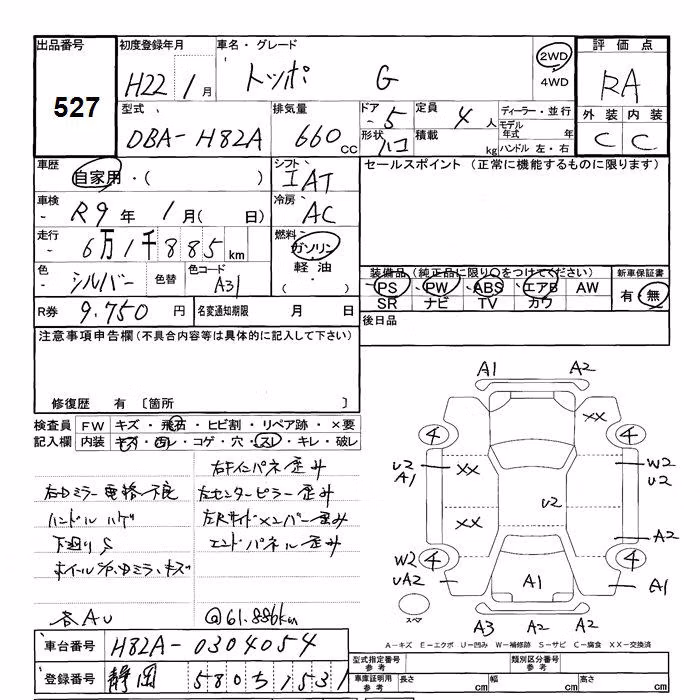 出品番号 初度登録年月 車名・グレード 2WD 評価点
527 H22 1月 トッポ G 4WD RA
型式 排気量 ドア 5 定員 4人 ディーラー・並行 外装 内装
DBA-H82A 660cc 形状 ハコ 積載 kg モデル年式 年 C C
ハンドル 左・右
車歴 自家用・( ) シフト IAT セールスポイント (正常に機能するものに限ります)
車検 R9年 1月( 日) 冷房 AC
走行 6万1千885km 燃料 ガソリン
色 シルバー 色替 色コード A31 軽油
( ) 装備品(純正品に限り○をつけてください) 新車保証書
PS PW ABS エアB AW 有・無
R券 9,750円 名変通知期限 SR ナビ TV カワ
注意事項申告欄(不具合内容等は具体的に記入して下さい) 後日品
修復歴 有 〔箇所 〕
検査員 FW キズ・飛石・ヒビ割・リペア跡・×要
記入欄 内装 キズ・凹レ・コゲ・穴・スレ・キレ・破レ
右Fインパネ歪み
右Dミラー電格不良 左センターピラー歪み
ハンドルハゲ 左Rサイドメンバー歪み
下廻りS エンドパネル歪み
各AU @61.886km
A1 A2
XX
4 4
U2 A1 XX W2 U2
U2
XX A2
W2 UA2 4 4 A1
A1
スペア A3 A2 A2
A-キズ E-エクボ U-凹み W-補修跡 S-サビ C-腐食 XX-交換済
車台番号 H82A-0304054 型式指定番号 参考 類別区分番号 参考
登録番号 静岡 580ち1531 車庫証明用 参考 長さ cm 幅 cm 高さ cm